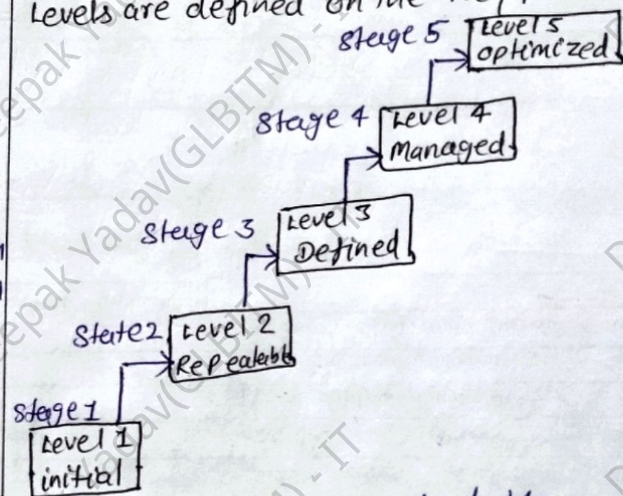 Levels are defined on the
Stage 5
Level 5
optimized
Stage 4
Level 4
Managed
Stage 3
Level 3
Defined
State2
Level 2
Repeatable
Stage 1
Level 1
initial
Deepak Yadav(GLBITM) - IT